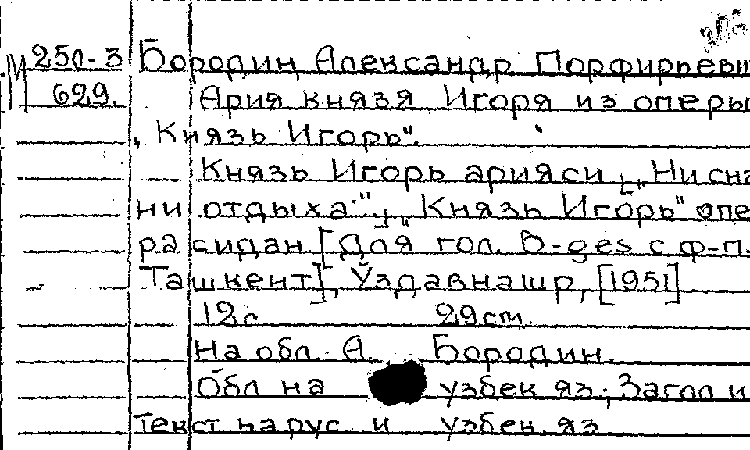 250-3 Бородин Александр Порфирьеви
629. Ария князя Игоря из оперы
„Князь Игорь".
Князь Игорь арияси [„Ни сна
ни отдыха"], „Князь Игорь" опе
расидан [Для гол. D-ges с ф-п.
Ташкент], Ўздавнашр, [1951]
12с 29 cm.
На обл. А. Бородин.
Обл на узбек яз.; Загол и
текст на рус и узбек. яз